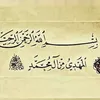 بسم الله الرحمن الرحيم
المهدي من آل محمد